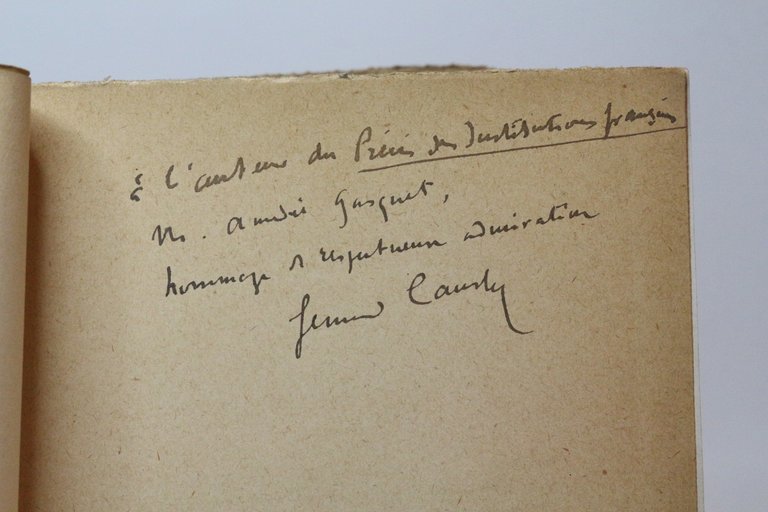 à l'auteur du Précis des Institutions français
M. Amédée Gasquet,
hommage et respectueuse admiration